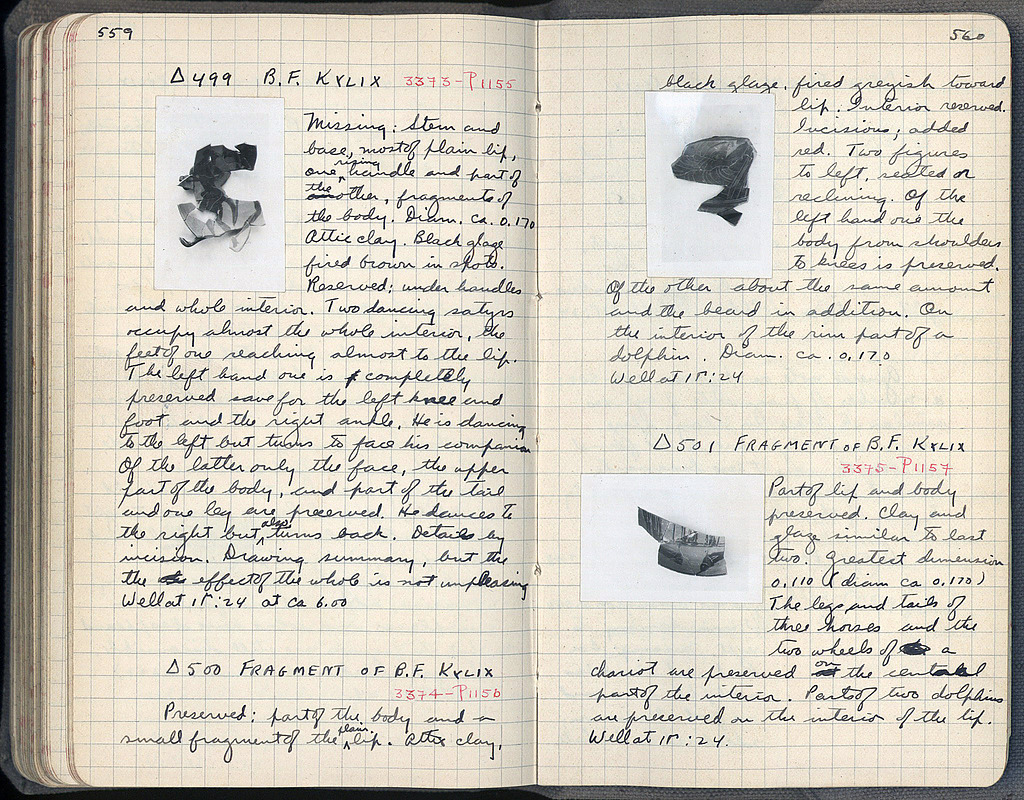 559
Δ499 B.F. KYLIX 3373-P1155
Missing: Stem and
base, most of plain lip,
one rising handle and part of
the other, fragments of
the body. Diam. ca. 0.170
Attic clay. Black glaze
fired brown in spots.
Reserved; under handles
and whole interior. Two dancing satyrs
occupy almost the whole interior, the
feet of one reaching almost to the lip.
The left hand one is completely
preserved save for the left knee and
foot and the right ankle. He is dancing
to the left but turns to face his companion
Of the latter only the face, the upper
part of the body, and part of the tail
and one leg are preserved. He dances to
the right but also turns back. Details by
incision. Drawing summary, but the
the effect of the whole is not unpleasing
Well at ΙΓ:24 at ca 6.00
Δ500 FRAGMENT OF B.F. KYLIX
3374-P1156
Preserved: part of the body and a
small fragment of the plain lip. Attic clay,
560
black glaze, fired greyish toward
lip. Interior reserved.
Incisions; added
red. Two figures
to left, seated or
reclining. Of the
left hand one the
body from shoulders
to knees is preserved.
Of the other about the same amount
and the beard in addition. On
the interior of the rim part of a
dolphin. Diam. ca. 0.170
Well at ΙΓ:24
Δ501 FRAGMENT OF B.F. KYLIX
3375-P1157
Part of lip and body
preserved. Clay and
glaze similar to last
two. Greatest dimension
0.110 (diam ca 0.170)
The legs and tails of
three horses and the
two wheels of a
chariot are preserved on the central
part of the interior. Parts of two dolphins
are preserved on the interior of the lip.
Well at ΙΓ:24.